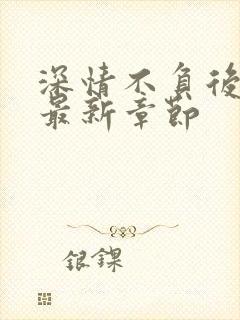 深情不負後
最新章節
银鏁